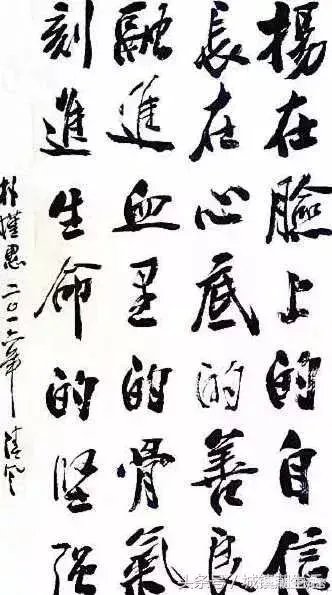 揚在臉上的自信
長在心底的善良
融進血里的骨氣
刻進生命的堅强
朴槿惠 二〇一六年 清风
头条号